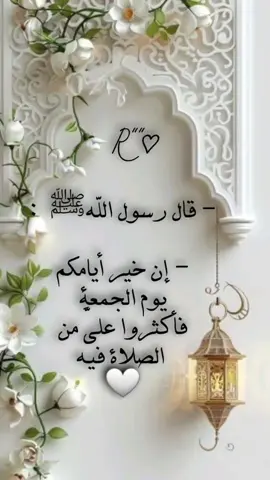 R""♡
- قال رسول اللّه ﷺ :
- إن خير أيامكم
يوم الجمعةِ
فأكثروا على من
الصلاة فيه
🤍